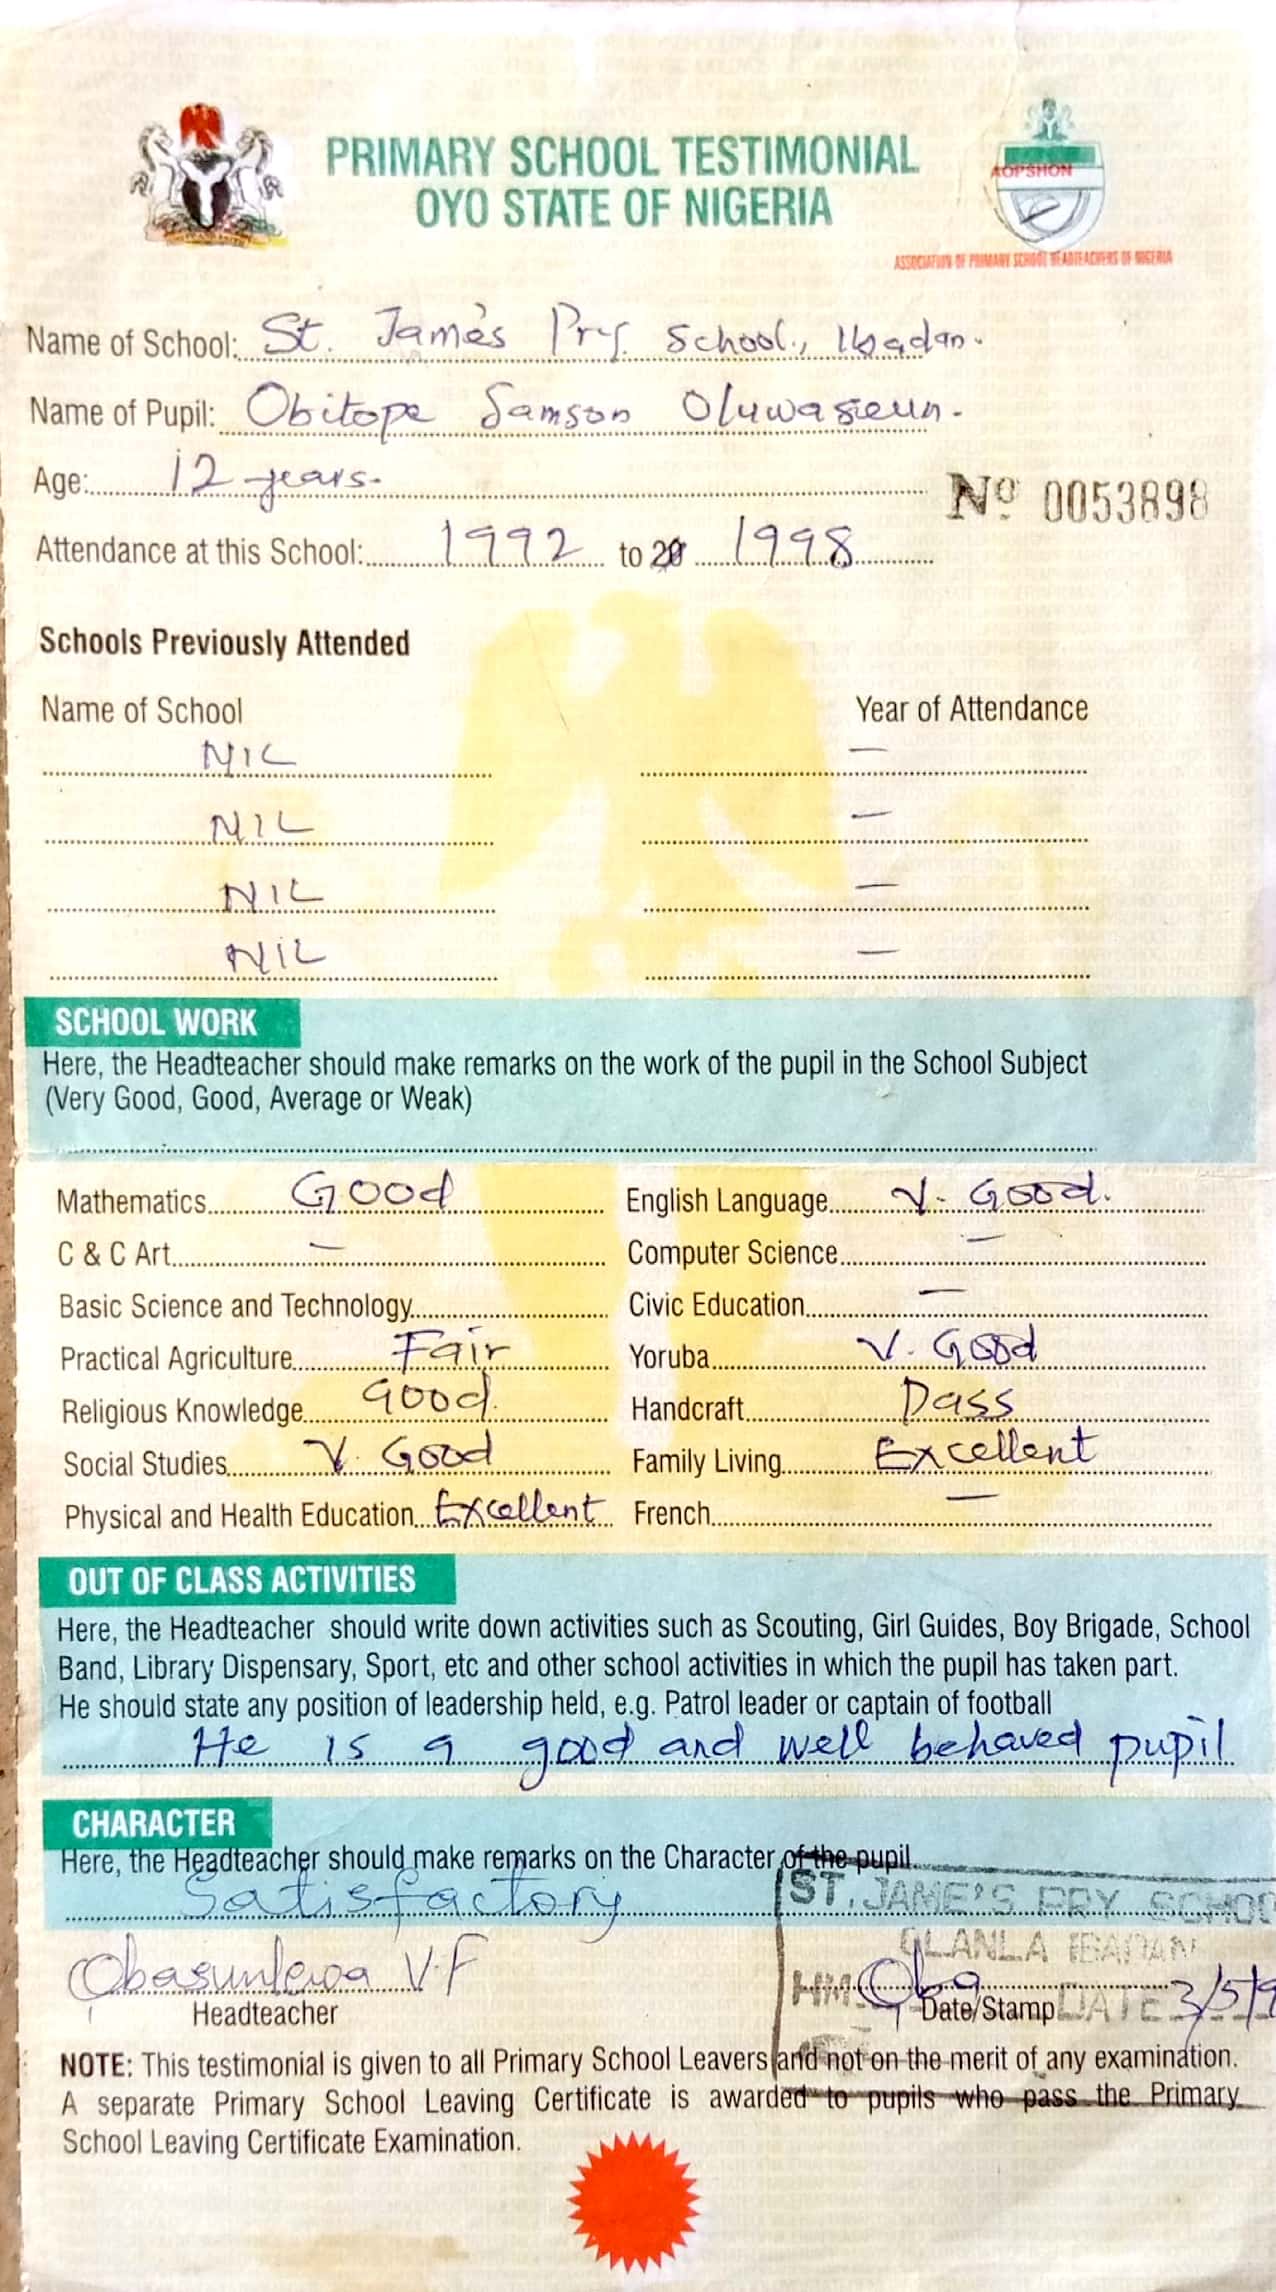 PRIMARY SCHOOL TESTIMONIAL
OYO STATE OF NIGERIA
AOPSHON
ASSOCIATION OF PRIMARY SCHOOL HEADTEACHERS OF NIGERIA
Name of School: St. James Pry School, Ibadan.
Name of Pupil: Obitope Samson Oluwaseun.
Age: 12 years.
No 0053898
Attendance at this School: 1992 to 20 1998
Schools Previously Attended
Name of School Year of Attendance
NIL —
NIL —
NIL —
NIL —
SCHOOL WORK
Here, the Headteacher should make remarks on the work of the pupil in the School Subject
(Very Good, Good, Average or Weak)
Mathematics Good English Language V. Good.
C & C Art — Computer Science —
Basic Science and Technology Civic Education —
Practical Agriculture Fair Yoruba V. Good
Religious Knowledge Good. Handcraft Pass
Social Studies V. Good Family Living Excellent
Physical and Health Education Excellent French —
OUT OF CLASS ACTIVITIES
Here, the Headteacher should write down activities such as Scouting, Girl Guides, Boy Brigade, School
Band, Library Dispensary, Sport, etc and other school activities in which the pupil has taken part.
He should state any position of leadership held, e.g. Patrol leader or captain of football
He is a good and well behaved pupil
CHARACTER
Here, the Headteacher should make remarks on the Character of the pupil
Satisfactory
ST. JAME'S PRY SCHOO
OLANLA IBADAN
Obasunlewa V.F HM. Oba DATE 3/5/9
Headteacher Date/Stamp
NOTE: This testimonial is given to all Primary School Leavers and not on the merit of any examination.
A separate Primary School Leaving Certificate is awarded to pupils who pass the Primary
School Leaving Certificate Examination.